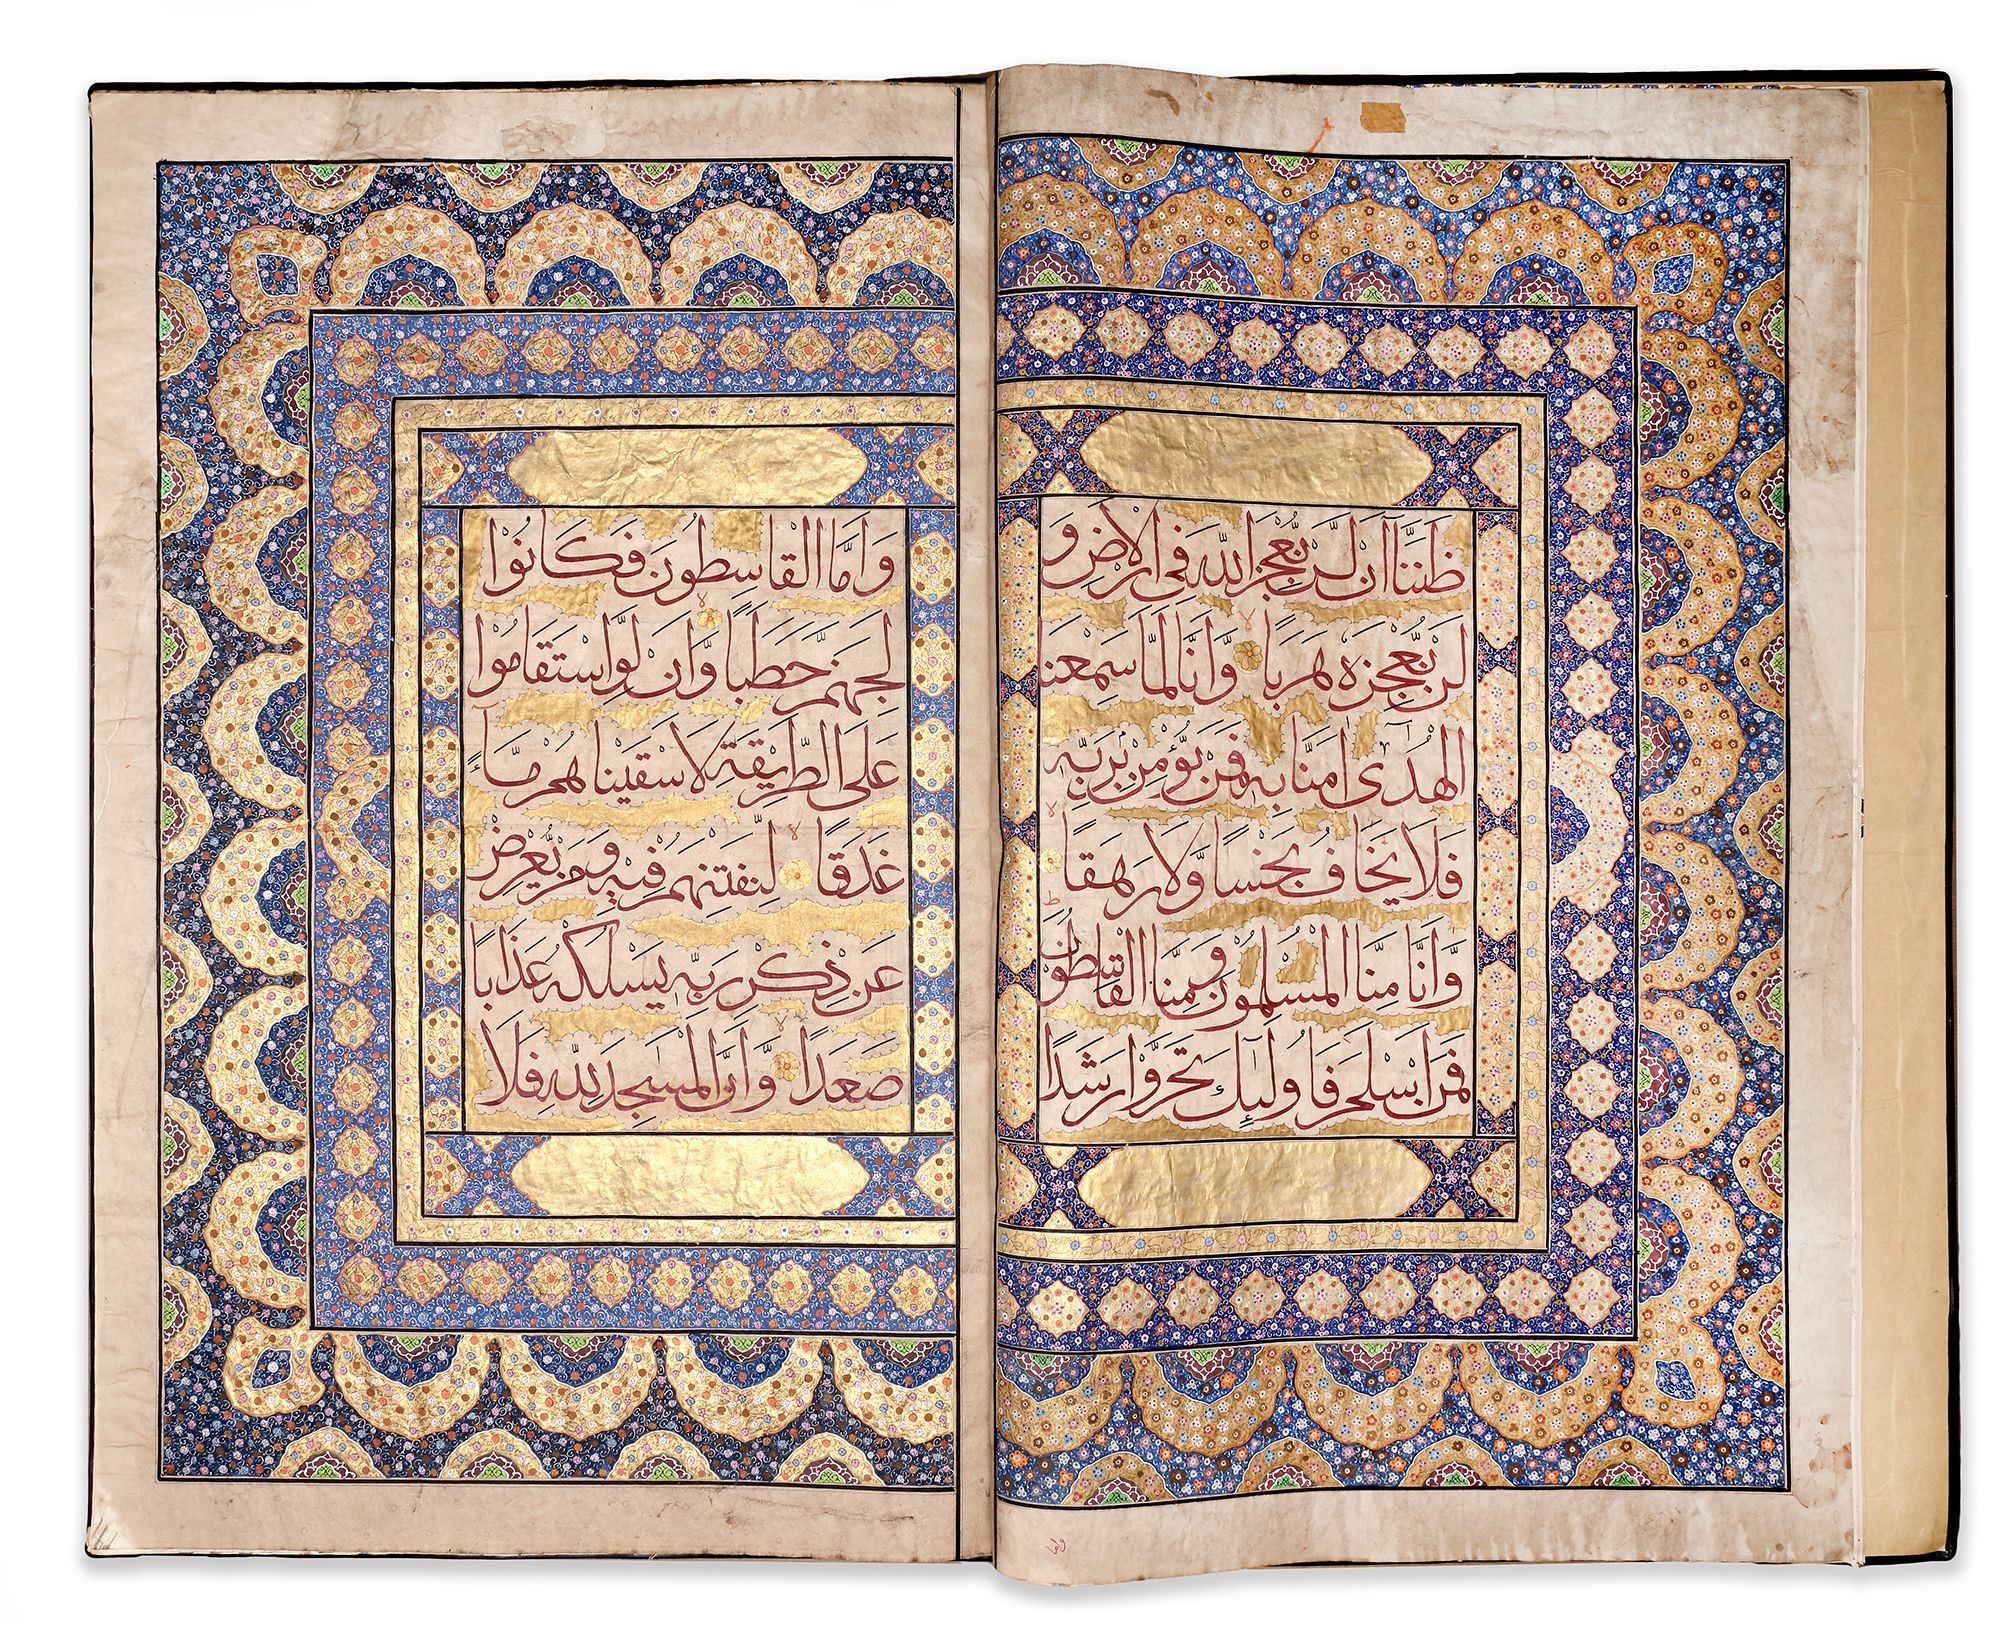 ظَنَنَّا أَن لَّن نُّعْجِزَ اللّٰهَ فِى الْاَرْضِ وَ
لَن نُّعْجِزَهُ هَرَبًا لا وَّاَنَّا لَمَّا سَمِعْنَا
الْهُدٰٓى اٰمَنَّا بِهٖ فَمَن يُّؤْمِنْ بِرَبِّهٖ
فَلَا يَخَافُ بَخْسًا وَّلَا رَهَقًا لا
وَّاَنَّا مِنَّا الْمُسْلِمُونَ وَمِنَّا الْقَاسِطُونَ ط
فَمَنْ اَسْلَمَ فَاُولٰٓئِكَ تَحَرَّوْا رَشَدًا
وَاَمَّا الْقَاسِطُونَ فَكَانُوْا
لِجَهَنَّمَ حَطَبًا لا وَّاَنْ لَّوِ اسْتَقَامُوْا
عَلَى الطَّرِيْقَةِ لَاَسْقَيْنَاهُمْ مَّآءً
غَدَقًا لا لِنَفْتِنَهُمْ فِيْهِ وَمَنْ يُّعْرِضْ
عَنْ ذِكْرِ رَبِّهٖ يَسْلُكْهُ عَذَابًا
صَعَدًا لا وَّاَنَّ الْمَسٰجِدَ لِلّٰهِ فَلَا
واما